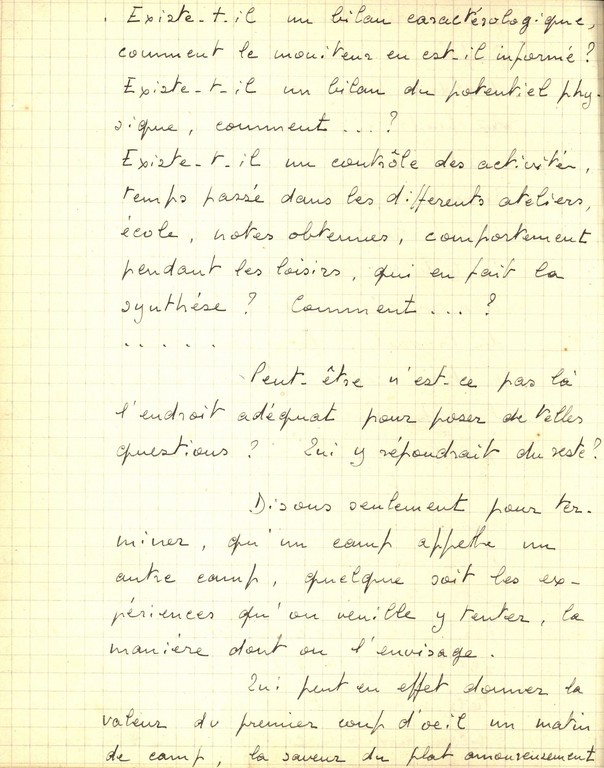 . Existe-t-il un bilan caractérologique,
comment le moniteur en est-il informé?
Existe-t-il un bilan du potentiel phy-
sique, comment ...?
Existe-t-il un contrôle des activités,
temps passé dans les différents ateliers,
école, notes obtenues, comportement
pendant les loisirs, qui en fait la
synthèse? Comment ...?
. . . . .
Peut-être n'est-ce pas là
l'endroit adéquat pour poser de telles
questions? Qui y répondrait du reste?
Disons seulement pour ter-
miner, qu'un camp appelle un
autre camp, quelque soit les ex-
périences qu'on veuille y tenter, la
manière dont on l'envisage.
Qui peut en effet donner la
valeur du premier coup d'oeil un matin
de camp, la saveur du plat amoureusement